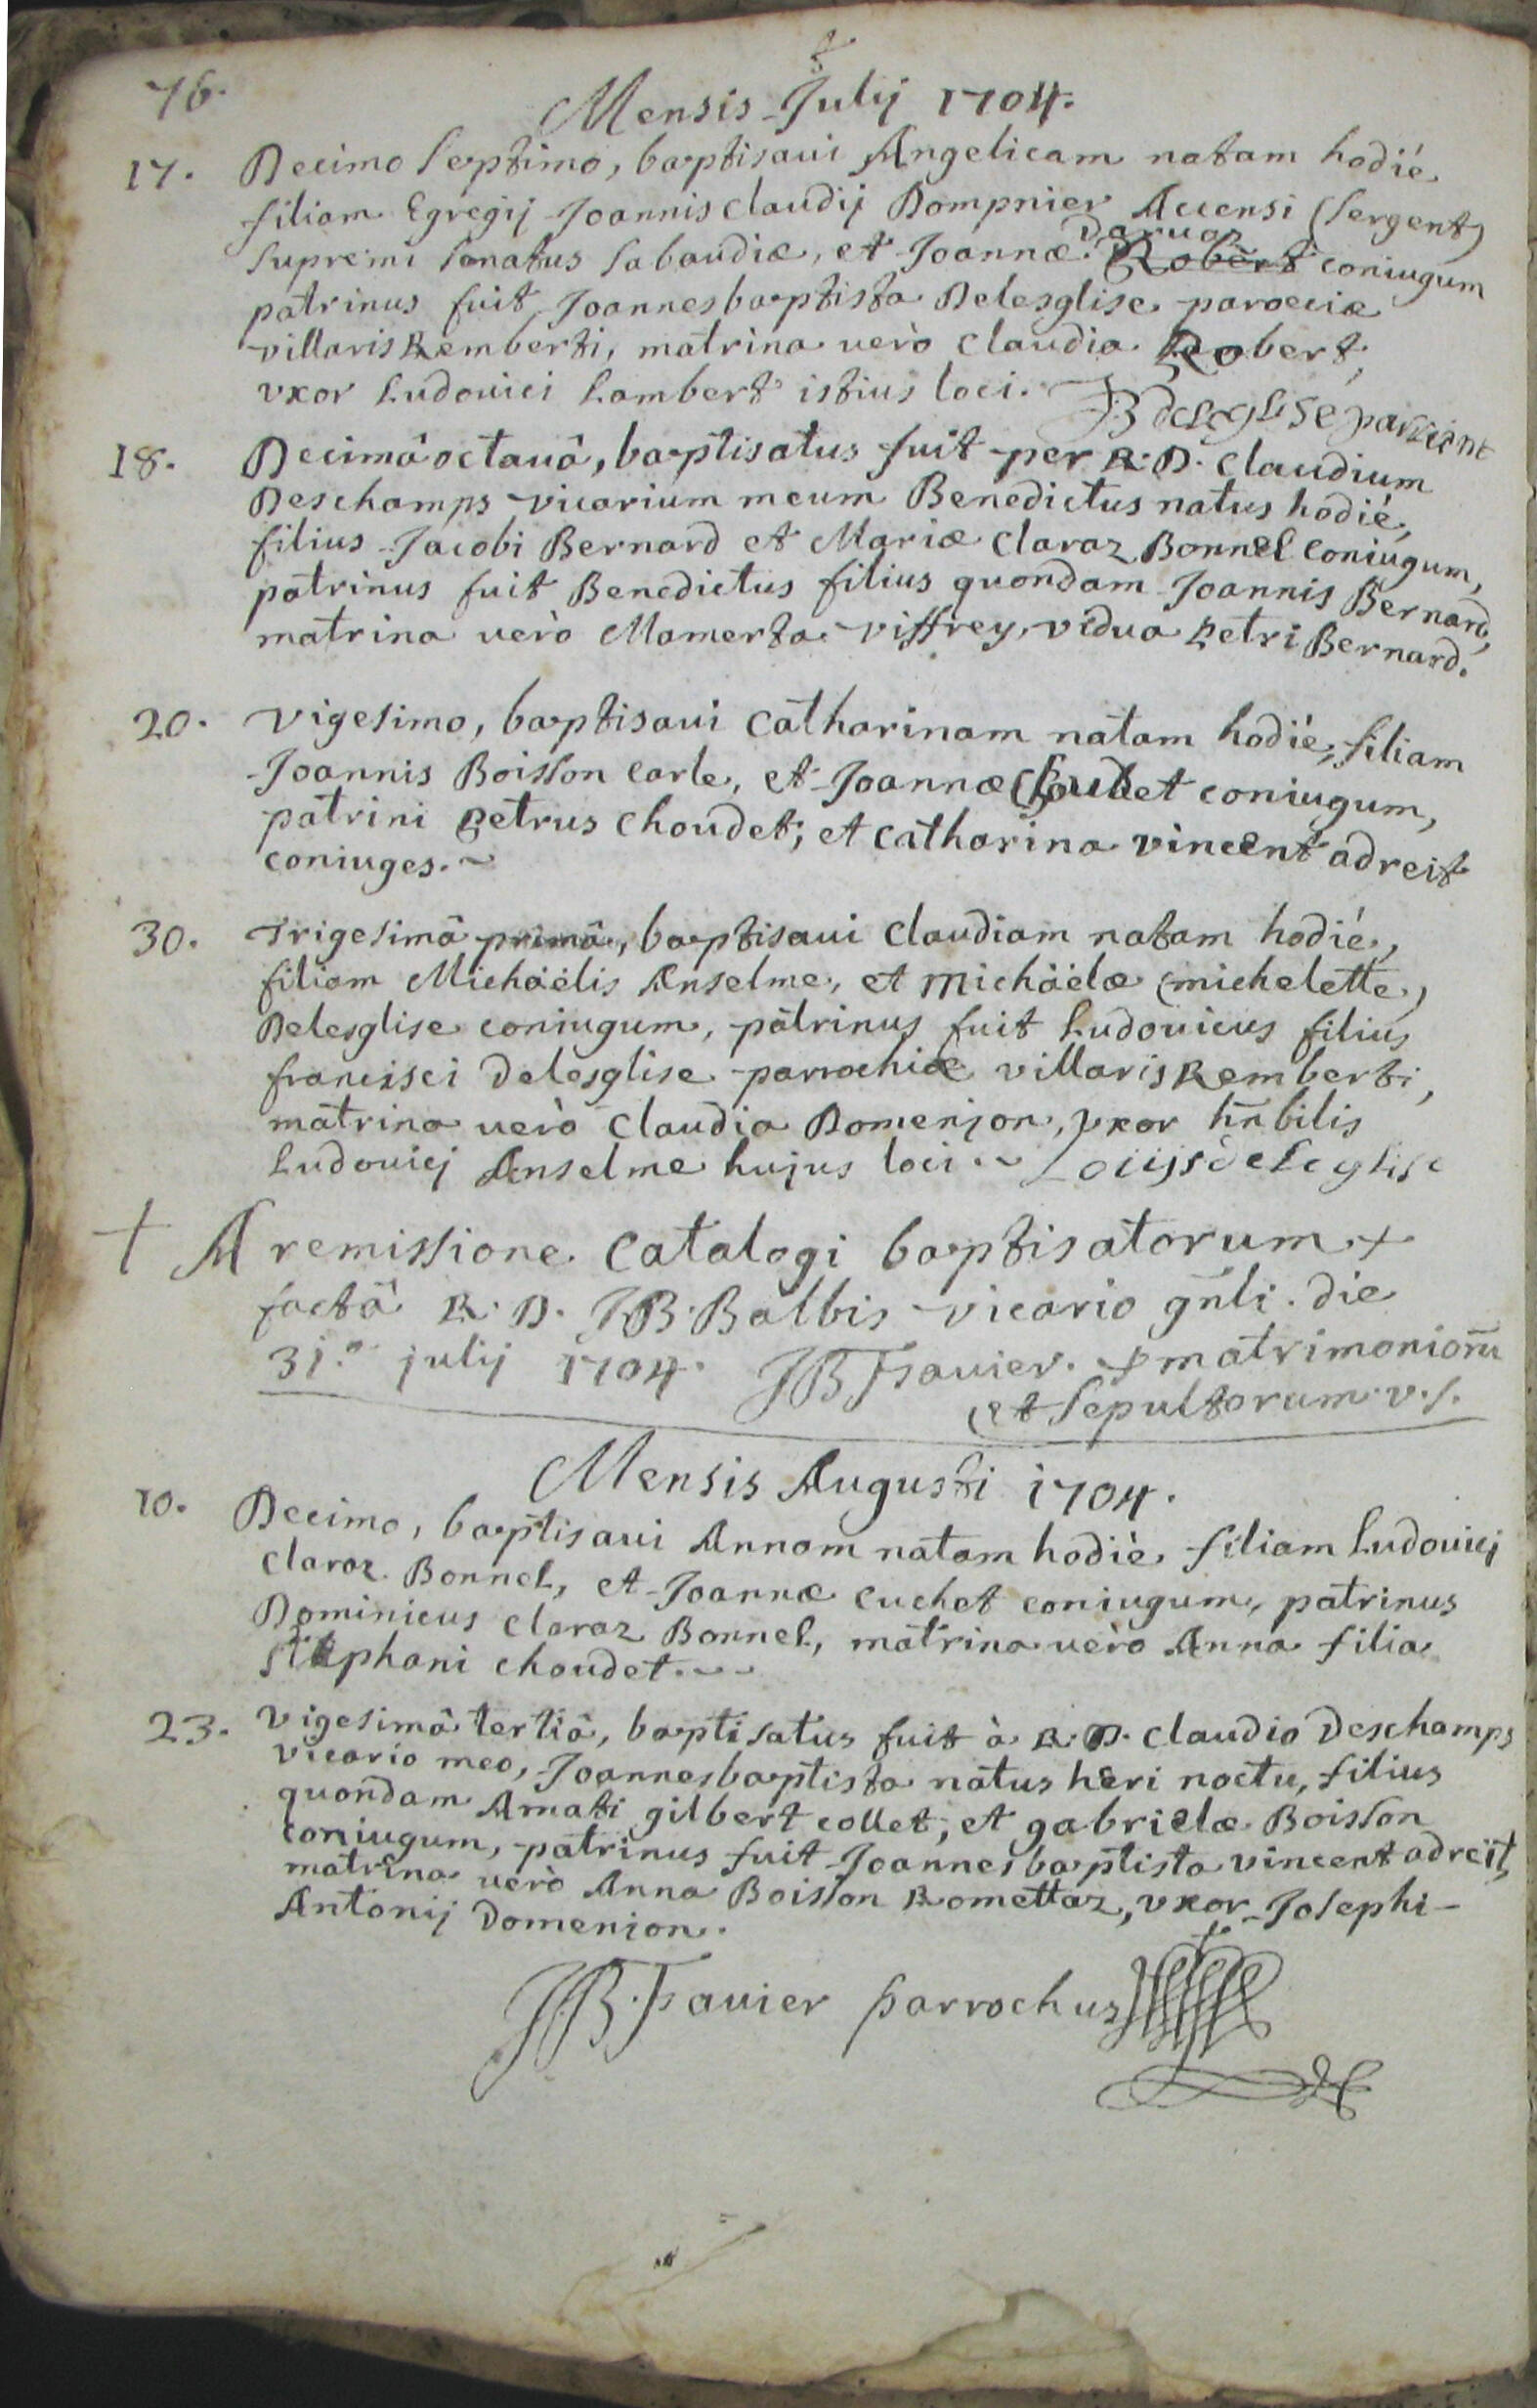 76.
Mensis Julij 1704.
17. Decimo septimo, baptisaui Angelicam natam hodié
filiam Egregij Joannis claudij Dompnier Accensi (sergent)
supremi senatus sabaudiæ, et Joannæ Daruoz Robert coniugum
patrinus fuit Joannesbaptista Delesglise paroeciæ
villaris Remberti, matrina uerò claudia Robert,
vxor Ludouici Lambert istius loci. JB deleglise parreint
18. Decimâoctauâ, baptisatus fuit per R. D. claudium
Deschamps vicarium meum Benedictus natus hodié,
filius Jacobi Bernard et Mariæ claraz Bonnel coniugum,
patrinus fuit Benedictus filius quondam Joannis Bernard,
matrina uerò Mamerta viffrey, vidua petri Bernard.
20. vigesimo, baptisaui catharinam natam hodié, filiam
Joannis Boisson carle, et Joannæ Choudet coniugum,
patrini petrus choudet, et catharina vincent adreit
coniuges.~
30. Trigesimâ primâ, baptisaui claudiam natam hodié,
filiam Michäèlis Anselme, et Michäèlæ (michelette)
Delesglise coniugum, patrinus fuit Ludouicus filius
francisci delesglise parrochiæ villaris Remberti,
matrina uerò claudia Domenjon, vxor hñbilis
Ludouicj Anselme hujus loci.~ Louijs deleglise
+ A remissione catalogi baptisatorum +
factâ R. D. JB. Balbis vicario gñli. die
31.a julij 1704. JB Fauier. + matrimoniorũ
et sepultorum. v.s.
Mensis Augusti 1704.
10. Decimo, baptisaui Annam natam hodiè filiam Ludouicj
claraz Bonnel, et Joannæ cuchet coniugum, patrinus
Dominicus claraz Bonnel, matrina uero Anna filia
stephani choudet.~~
23. vigesimâ tertiâ, baptisatus fuit à R. D. claudio Deschamps
vicario meo, Joannesbaptista natus heri noctu, filius
quondam Amati gilbert collet, et gabrielæ Boisson
coniugum, patrinus fuit Joannesbaptista vincent adreit,
matrina uerò Anna Boisson Romettaz, vxor Josephi-
Antonij Domenjon.
JB. Fauier parrochus